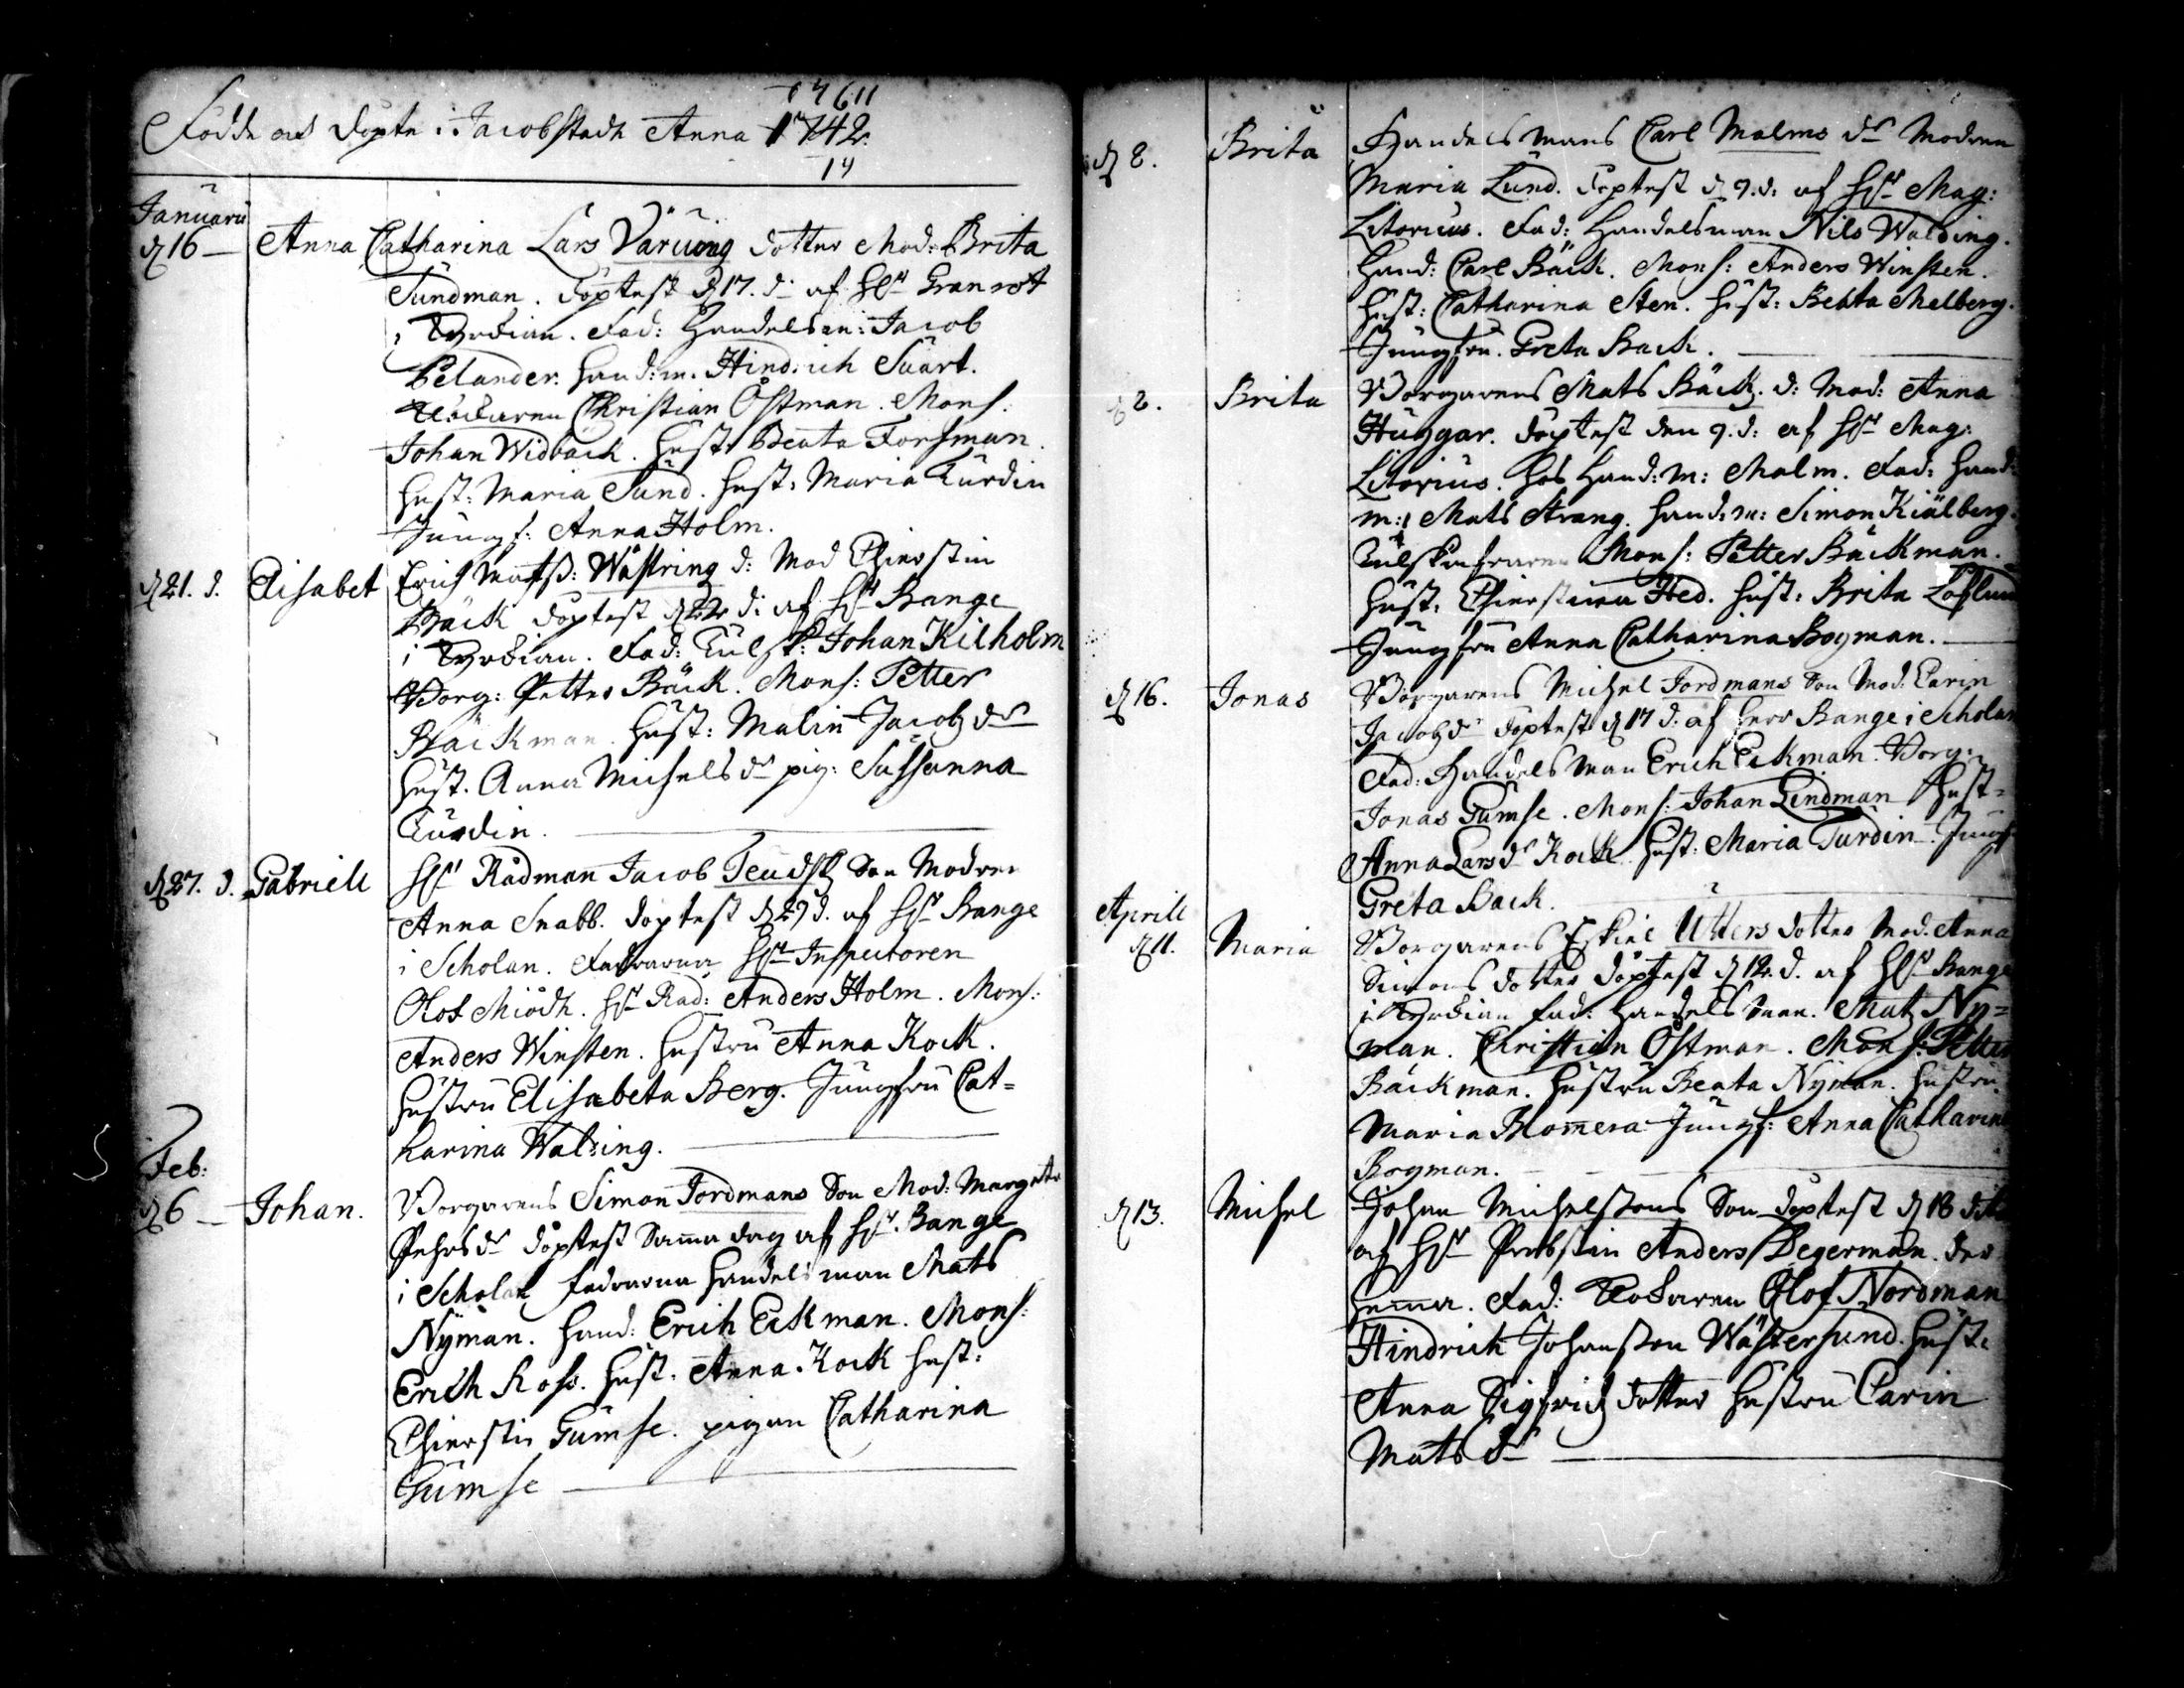 17611
Födde och Döpte i Jacobstadh Anno 1742.
14
Januarii
d 16 — Anna Catharina Lars Däruong dotter Mod: Brita
Sundman. döptest d 17. d: af Hr Granrot
i Kyrckian. Fad: Handelsm: Jacob
Pelander. Hand: m. Hindrich Svart.
Klockaren Christian Östman. Mons:
Johan Widbäck. Hust: Beata Forssman.
Hust: Maria Sund. Hust: Maria Turdin
Jungf: Anna Holm.
d 21. d. Elisabet Erich Matss: Wästring d: Mod Chierstin
Bäck döptest d 22 d: af Hr Bange
i Kyrckian. Fad: Tulsk: Johan Kilholm
Borg: Petter Bäck. Mons: Petter
Bäckman. Hust: Malin Jacobzdr
Hust. Anna Michelsdr pig: Sussanna
Turdin.
d 27. d. Gabriell Hr Rådman Jacob Teudsk Son Modren
Anna Snabb. döptest d 29 d. af Hr Bange
i Scholan. Faddrarna Hr Inspectoren
Olof Miödh. Hr Rad: Anders Holm. Mons:
Anders Winsten. Hustru Anna Kock.
Hustru Elisabeta Berg. Jungfru Cat=
harina Walzing.
Feb:
d 6 — Johan. Borgarens Simon Jordmans Son Mod: Margeta
Pehrsdr döptest Samma dag af Hr. Bange
i Scholan Faddrarna Handelsman Mats
Nyman. Hand: Erich Eckman. Mons:
Erich Ross. Hust. Anna Kock Hust:
Chierstin Gumse. pigan Catharina
Gumse
d 8. Brita Handelsmans Carl Malms dr Modren
Maria Lund. döptest d 9. d: af Hr Mag:
Litorius. Fad: Handelsman Nils Walding.
Hand: Carl Bäck. Mons: Anders Winsten.
Hust: Catharina Sten. Hust: Beata Melberg.
Jungfru. Greta Back.
d 8. Brita Borgarens Mats Bäck. d: Mod: Anna
Huggar. döptest den 9. d: af Hr Mag:
Litorius. hos Hand: m: Malm. Fad: Hand:
m: Mats Strang. Hand: m: Simon Kiälberg.
Tulskrifvaren Mons: Petter Bäckman.
Hust: Chierstina Hed. Hust: Brita Löflund
Jungfru Anna Catharina Bogman.
d 16. Jonas Borgarens Michel Jordmans Son Mod: Carin
Jacobzdr döptest d 17 d. af Herr Bange i Scholan
Fad: Handelsman Erich Eckman. Borg:
Jonas Gumse. Mons: Johan Lindman Hust=
Anna Larsdr Kock. Hust: Maria Turdin. Jungf
Greta Back.
Aprill
d 11. Maria Borgarens Eskiel Utters dotter Mod. Anna
Simons dotter döptest d 12. d. af Hr Bange
i Kyrckian Fad: Handelsman. Matz Ny=
man. Christian Östman. Mons: Petter
Bäckman. Hustru Beata Nyman. Hustru
Maria Blomera Jungf: Anna Catharina
Bogman.
d 13. Michel Johan Michelssons Son döptest d 18 dito
af Hr Probsten Anders Degerman. der
hemma. Fad: Klockaren Olof Nordman
Hindrich Johansson Wästersund. Hust:
Anna Sigfridz dotter Hustru Carin
Matsdr